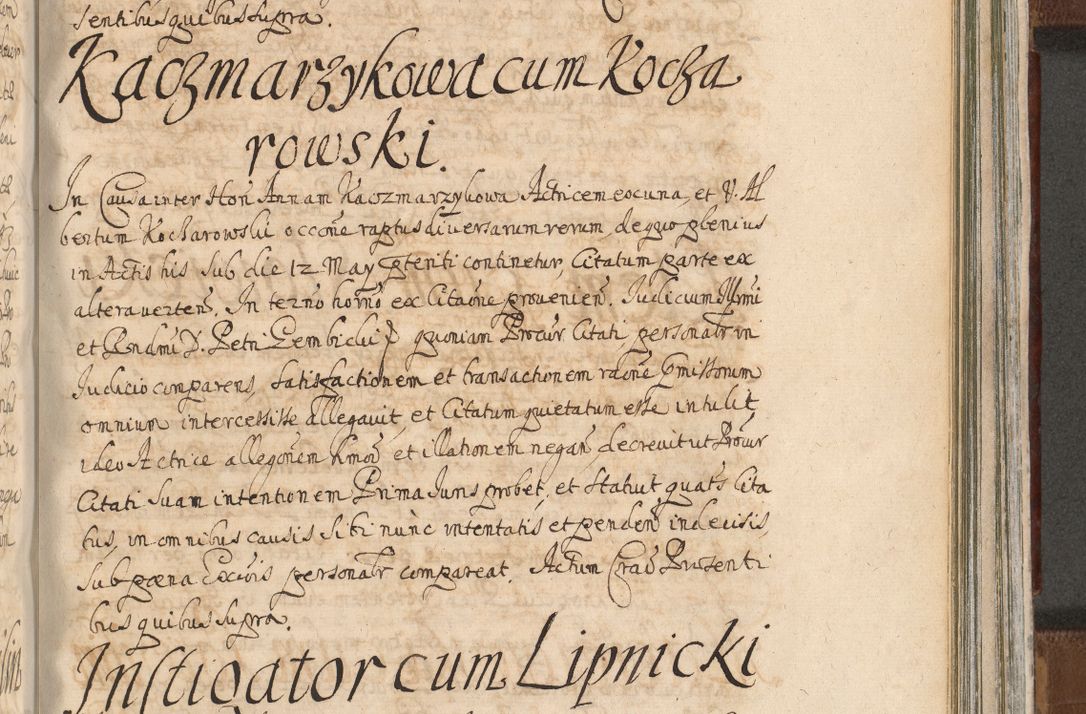 sentibus quibus supra.
Kaczmarzykowa cum Kocza
rowski.
In Causa inter Hon Annam Kaczmarzykowa Actricem ex una, et V. Al
bertum Kocharowski occõne raptus diversarum rerum, de quo plenius
in Actis his sub die 12 May pteriti continetur, Citatum parte ex
altera vertens. In termo horno ex Citaõne provenien. Iudicium Illmi
et Rndmi D. Petri Gembicki quoniam Procur Citati personalr in
Iudicio comparens, satisfactionem et transactionem raõne pmissorum
omnium intercessisse allegavit, et Citatum quietatum esse intulit,
ideo Actrice allegõnem hmoi et illationem negan, decrevit ut Procur
Citati suam intentionem Prima Iuris probet, et statuit quats Cita
tus, in omnibus causis sibi nunc intentatis, et penden indecisis,
sub pæna Excõis personalr compareat. Actum Crac Præsenti
bus quibus supra.
Instigator cum Lipnicki